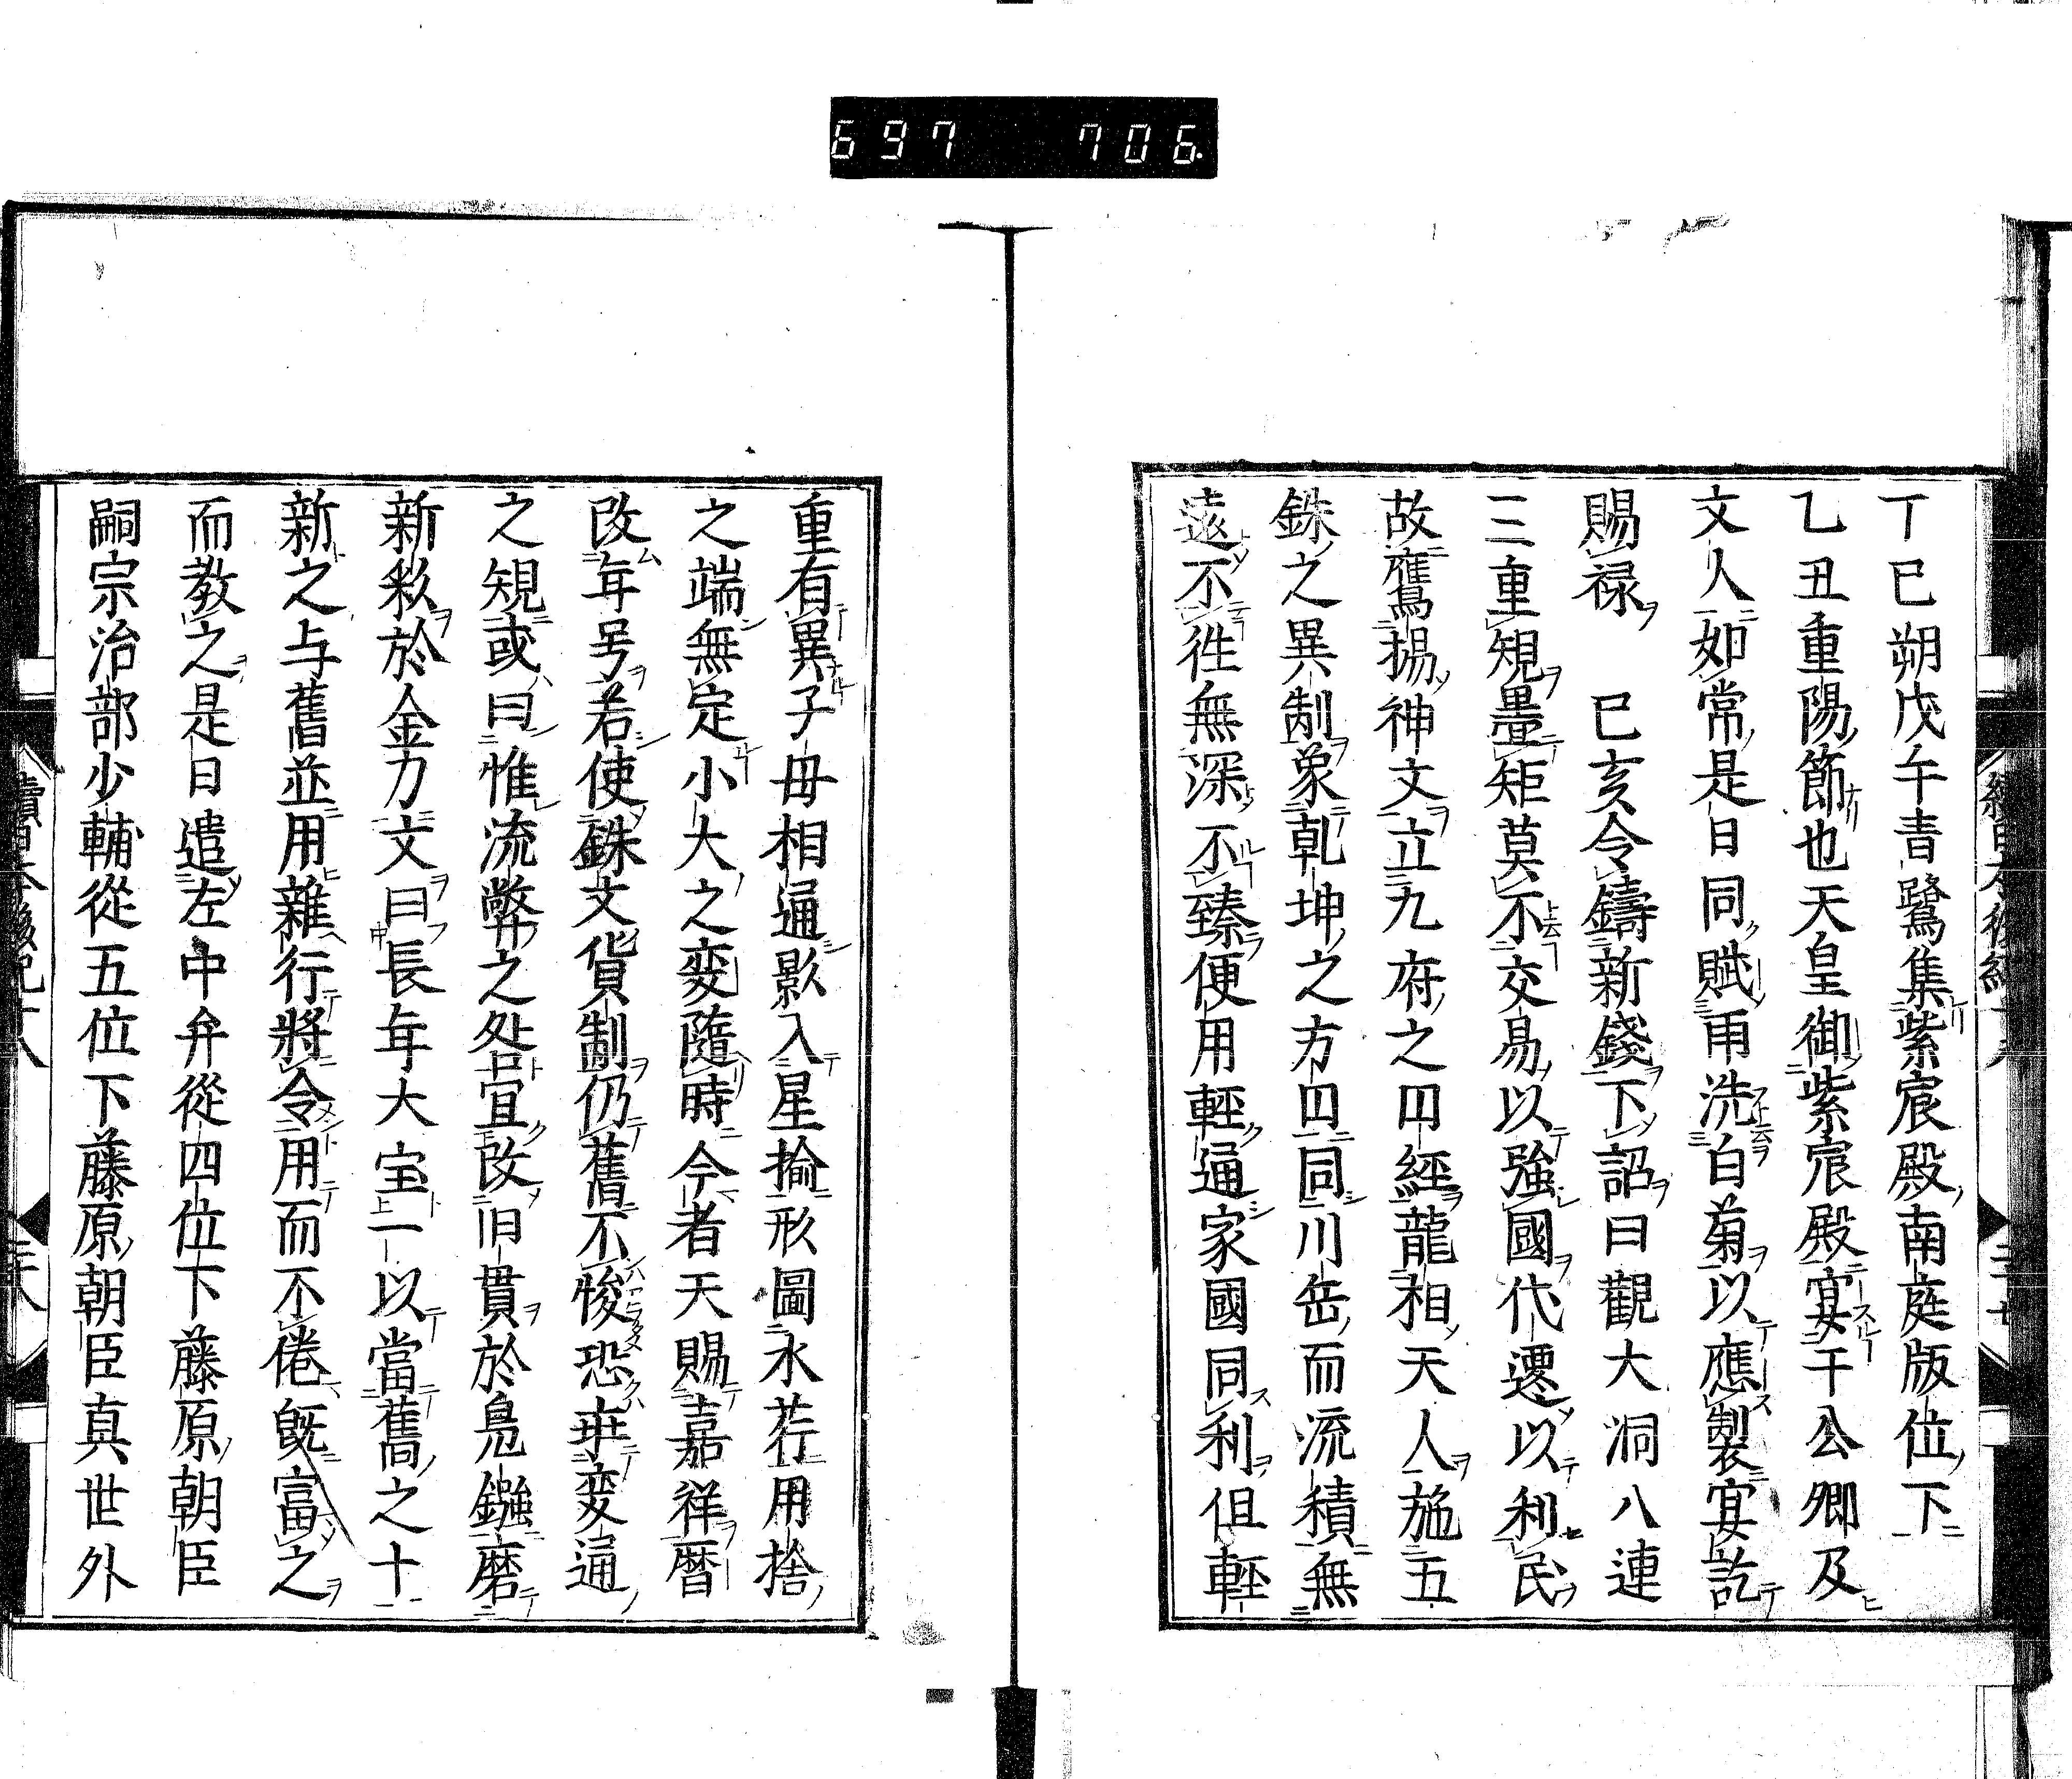 697 706
丁巳朔戊午青鷺集紫宸殿南庭版位下
乙丑重陽節也天皇御紫宸殿宴于公卿及
文人如常是日同賦雨洗白菊以應製宴訖
賜禄 已亥令鑄新錢下詔曰觀大洞八連
三重䂓疊矩莫不交易以強國代遷以利民
故鷹揚神文立九府之囗經龍相天人施五
銖之異制象乾坤之方囗同川岳而流積無
遠不徃無深不臻便用輕通家國同利但輕
重有異子毋相通影入星揄形圖水荇用捨
之端無定小大之変隨時今者天賜嘉祥暦
改年号若使銖文貨制仍舊不悛恐乖変通
之䂓或曰惟流弊之咎宜改旧貫於鳧鏹磨
新𥿄於金刀文曰長年大宝一以當舊之十
新之与舊並用雜行將令用而不倦既富之
而教之是日遣左中弁從四位下藤原朝臣
嗣宗治部少輔從五位下藤原朝臣真世外